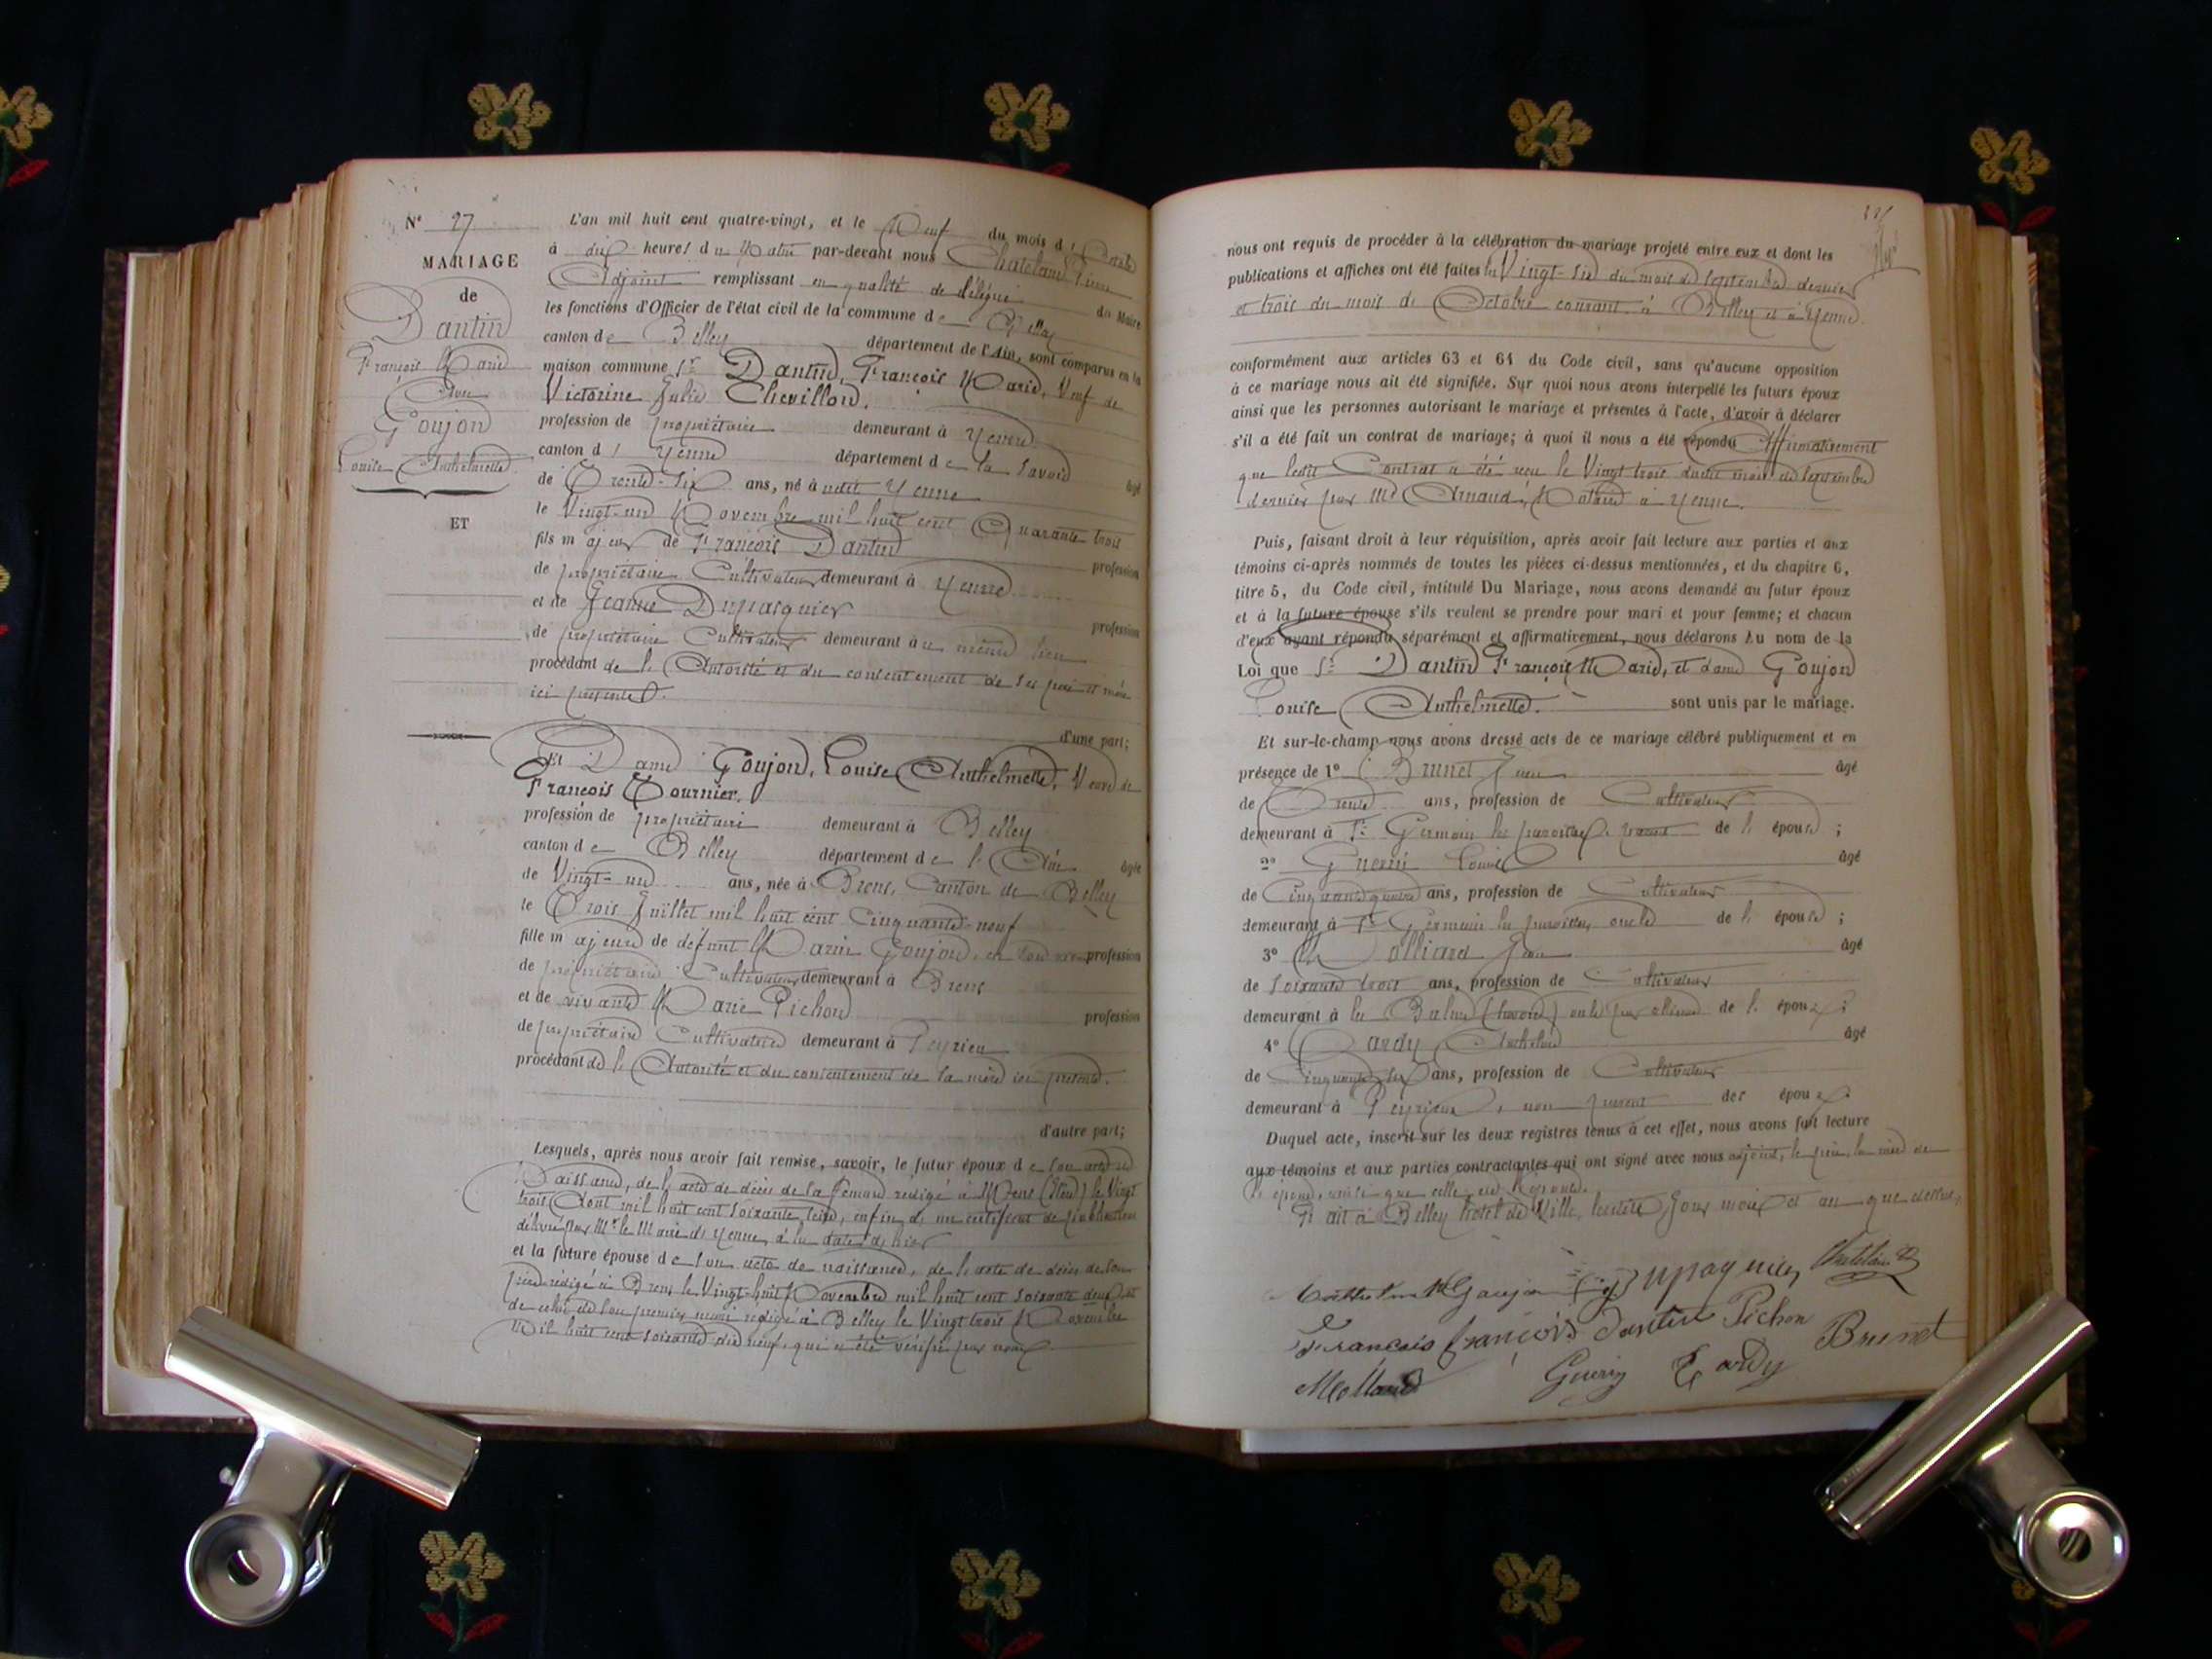 N° 27
MARIAGE
de
Dantin
François Marie
Avec
Goujon
Louise Anthelmette
ET
L'an mil huit cent quatre-vingt, et le Neuf du mois d'Octobre
à dix heures du Matin par-devant nous Chatelain Pierre
Adjoint remplissant en qualité de délégué du Maire
les fonctions d'Officier de l'état civil de la commune de Belley
canton de Belley département de l'Ain, sont comparus en la
maison commune Sr Dantin, François Marie, Veuf de
Victorine Julie Chevillon.
profession de propriétaire demeurant à Yenne
canton d' Yenne département de la Savoie âgé
de Trente-six ans, né à udit Yenne
le Vingt-un Novembre mil huit cent Quarante trois
fils majeur de François Dantin profession
de propriétaire Cultivateur demeurant à Yenne
et de Jeanne Dupasquier profession
de propriétaire Cultivateur demeurant au même lieu
procédant de l'Autorité et du consentement de ses père et mère
ici présents.
d'une part;
Et Dame Goujon, Louise Anthelmette, Veuve de
François Tournier.
profession de propriétaire demeurant à Belley
canton de Belley département de l'Ain âgée
de Vingt-un ans, née à Brens, Canton de Belley
le Trois Juillet mil huit cent Cinquante-neuf
fille majeure de défunt Marin Goujon, en son vivant profession
de propriétaire Cultivateur demeurant à Brens
et de vivante Marie Pichon profession
de propriétaire Cultivatrice demeurant à Peyrieu
procédant de l'Autorité et du consentement de sa mère ici présente.
d'autre part;
Lesquels, après nous avoir fait remise, savoir, le futur époux de son acte de
Naissance, de l'acte de décès de sa femme rédigé à le Vingt
trois Août mil huit cent soixante seize, enfin d'un certificat de publication
délivré par Mr le Maire de Yenne, à la date d'hier
et la future épouse de son acte de naissance, de l'acte de décès de son
père rédigé à Brens le Vingt-huit Novembre mil huit cent soixante deux et
de celui de son premier mari rédigé à Belley le Vingt trois Novembre
Mil huit cent soixante dix neuf, qui a été vérifié par nous
nous ont requis de procéder à la célébration du mariage projeté entre eux et dont les
publications et affiches ont été faites les Vingt-six du mois de Septembre dernier
et trois du mois de Octobre courant à Belley et à Yenne.
conformément aux articles 63 et 64 du Code civil, sans qu'aucune opposition
à ce mariage nous ait été signifiée. Sur quoi nous avons interpellé les futurs époux
ainsi que les personnes autorisant le mariage et présentes à l'acte, d'avoir à déclarer
s'il a été fait un contrat de mariage; à quoi il nous a été répondu Affirmativement
que ledit Contrat a été reçu le Vingt trois dudit mois de Septembre
dernier par Me Arnaud, Notaire à Yenne.
Puis, faisant droit à leur réquisition, après avoir fait lecture aux parties et aux
témoins ci-après nommés de toutes les pièces ci-dessus mentionnées, et du chapitre 6,
titre 5, du Code civil, intitulé Du Mariage, nous avons demandé au futur époux
et à la future épouse s'ils veulent se prendre pour mari et pour femme; et chacun
d'eux ayant répondu séparément et affirmativement, nous déclarons au nom de la
Loi que Sr Dantin François Marie, et dame Goujon
Louise Anthelmette. sont unis par le mariage.
Et sur-le-champ nous avons dressé acte de ce mariage célébré publiquement et en
présence de 1° Brunet Jean âgé
de Trente ans, profession de Cultivateur
demeurant à St Germain les paroisses, parent de l'épouse ;
2° Guerin Louis âgé
de Cinquante quatre ans, profession de Cultivateur
demeurant à St Germain les paroisses, oncle de l'épouse ;
3° Molliard Jean âgé
de soixante trois ans, profession de Cultivateur
demeurant à la Balme (Savoie) oncle par alliance de l'époux ;
4° Tardy Anthelme âgé
de Cinquante six ans, profession de Cultivateur
demeurant à Peyrieu, non parent des époux.
Duquel acte, inscrit sur les deux registres tenus à cet effet, nous avons fait lecture
aux témoins et aux parties contractantes qui ont signé avec nous adjoint, le père, la mère de
l'époux, ainsi que celle de l'épouse.
Fait à Belley hotel de Ville, lesdits jour mois et an que dessus,
Goujon Dupaquier Chatelain
François françois dantin Pichon Brunet
Molliard Guerin Tardy